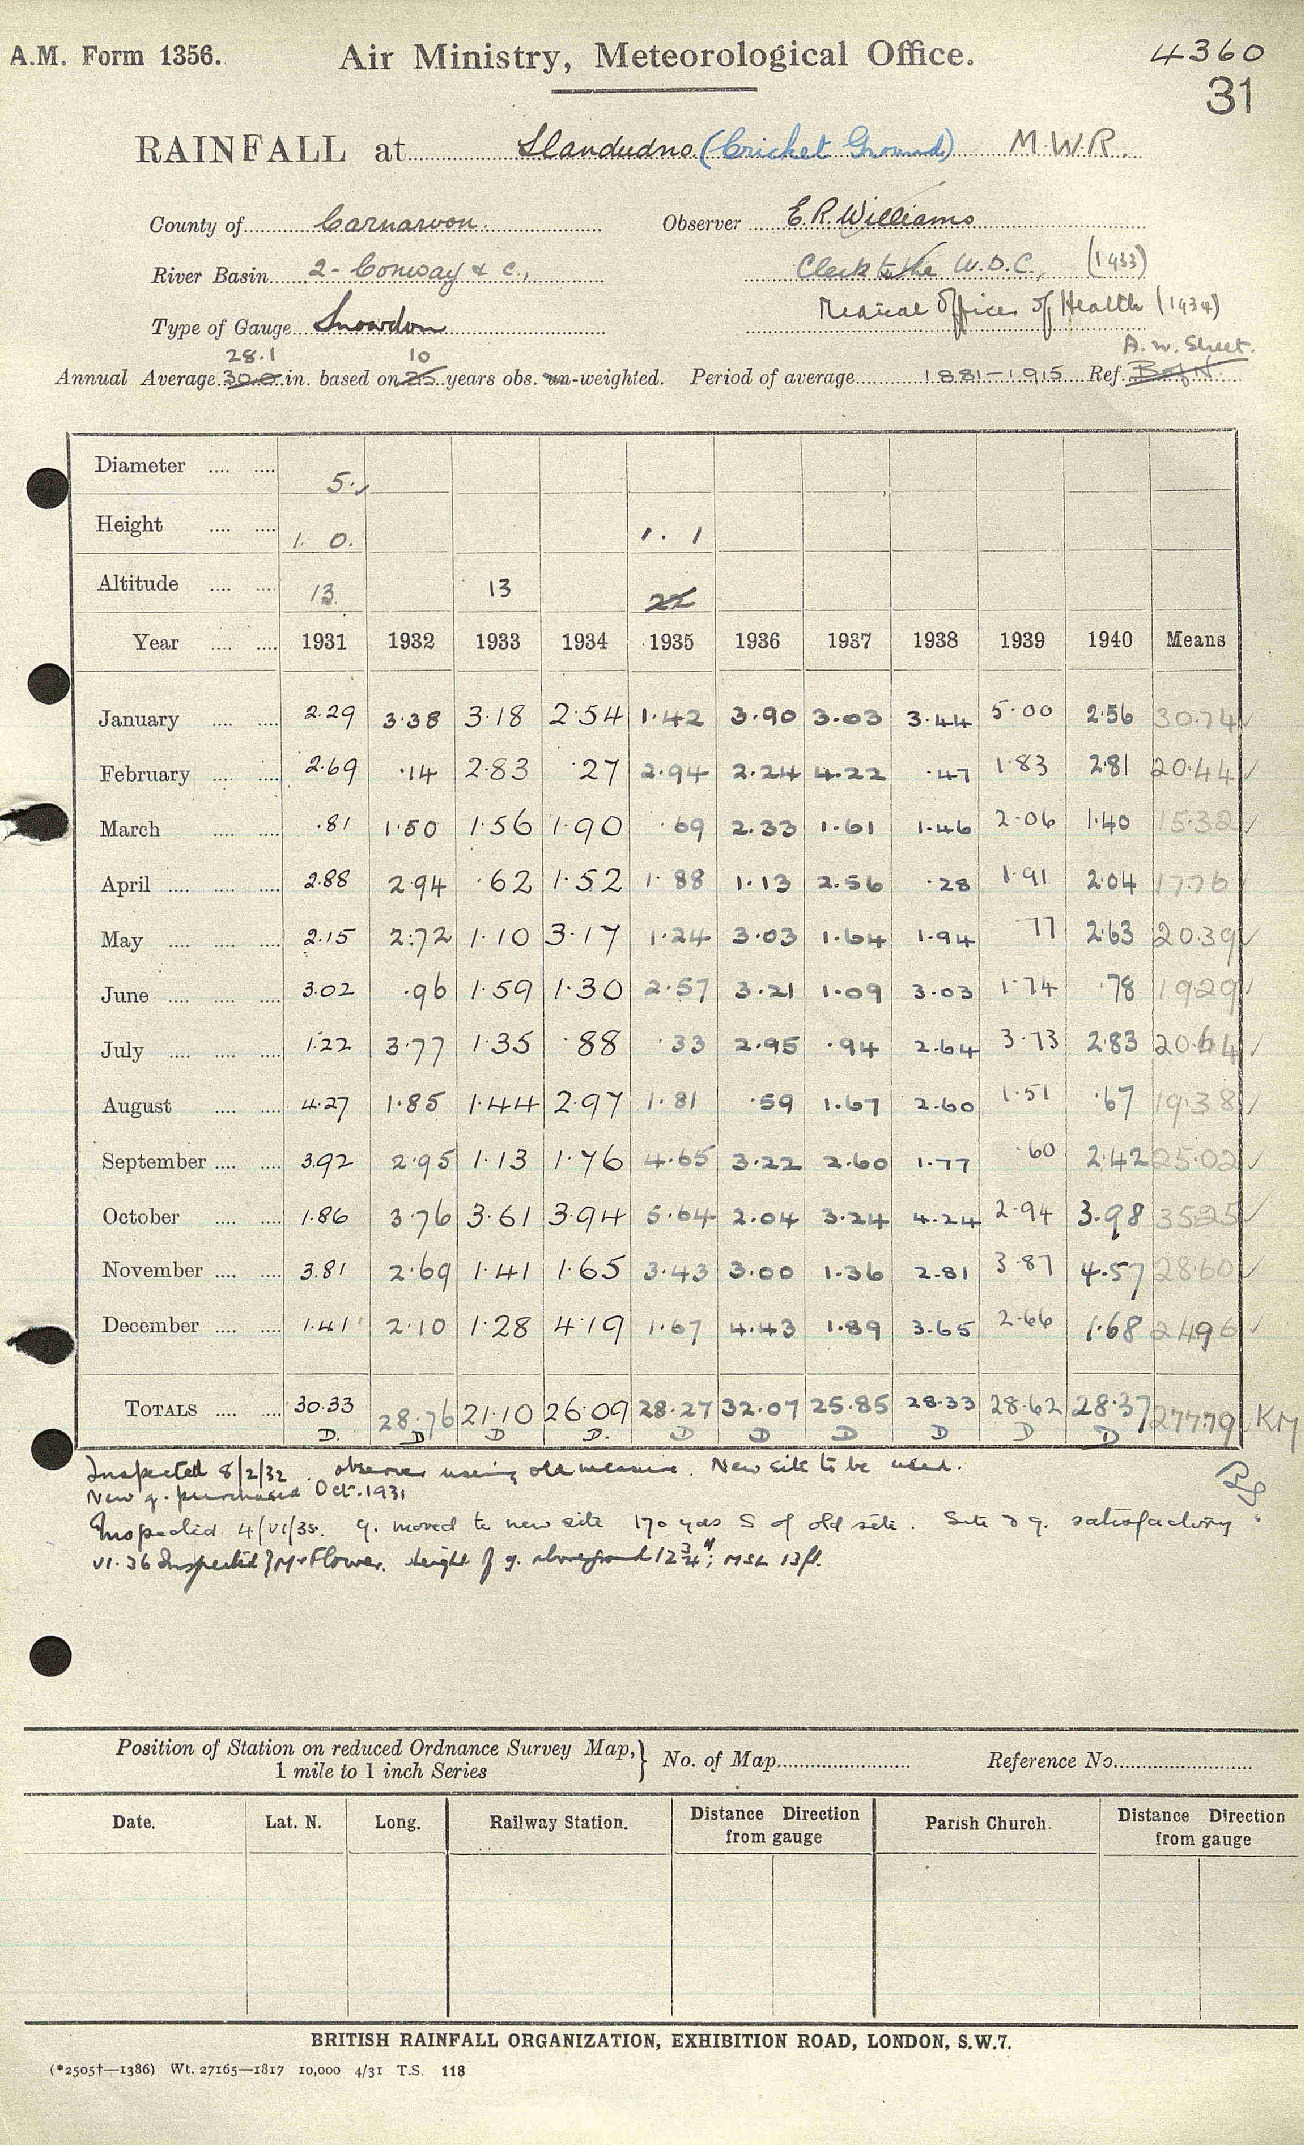 A.M. Form 1356. Air Ministry, Meteorological Office. 4360
31
RAINFALL at Llandudno (Cricket Ground) M.W.R.
County of Carnarvon Observer E.R. Williams
River Basin 2 - Conway & c., Clerk to the U.D.C., (1933)
Type of Gauge Snowdon Medical Officer of Health (1934)
28.1 10 A.W. Street.
Annual Average 30.0 in. based on 25 years obs. un-weighted. Period of average 1881-1915 Ref.
Diameter 5.
Height 1. 0. 1. 1
Altitude 13 13 22
Year 1931 1932 1933 1934 1935 1936 1937 1938 1939 1940 Means
January 2.29 3.38 3.18 2.54 1.42 3.90 3.03 3.44 5.00 2.56 30.74 ✓
February 2.69 .14 2.83 .27 2.94 2.24 4.22 .47 1.83 2.81 20.44 ✓
March .81 1.50 1.56 1.90 .69 2.33 1.61 1.46 2.06 1.40 15.32 ✓
April 2.88 2.94 .62 1.52 1.88 1.13 2.56 .28 1.91 2.04 17.76 ✓
May 2.15 2.72 1.10 3.17 1.24 3.03 1.64 1.94 .77 2.63 20.39 ✓
June 3.02 .96 1.59 1.30 2.57 3.21 1.09 3.03 1.74 .78 19.29 ✓
July 1.22 3.77 1.35 .88 .33 2.95 .94 2.64 3.73 2.83 20.64 ✓
August 4.27 1.85 1.44 2.97 1.81 .59 1.67 2.60 1.51 .67 19.38 ✓
September 3.92 2.95 1.13 1.76 4.65 3.22 2.60 1.77 .60 2.42 25.02 ✓
October 1.86 3.76 3.61 3.94 5.64 2.04 3.24 4.24 2.94 3.98 35.25 ✓
November 3.81 2.69 1.41 1.65 3.43 3.00 1.36 2.81 3.87 4.57 28.60 ✓
December 1.41 2.10 1.28 4.19 1.67 4.43 1.89 3.65 2.66 1.68 24.96 ✓
TOTALS 30.33 28.76 21.10 26.09 28.27 32.07 25.85 28.33 28.62 28.37 277.79 ✓ KM
D. D D D. D D D D D D
Inspected 8/2/32. observer using old measure. New site to be used.
New g. purchased Oct. 1931
Inspected 4/VI/35. g. moved to new site 170 yds S of old site. Site & g. satisfactory.
VI.36 Inspected by Mr Flower. Height of g. above ground 12 3/4"; MSL 13 ft.
Position of Station on reduced Ordnance Survey Map, } No. of Map Reference No.
1 mile to 1 inch Series
Date. Lat. N. Long. Railway Station. Distance Direction from gauge Parish Church. Distance Direction from gauge
BRITISH RAINFALL ORGANIZATION, EXHIBITION ROAD, LONDON, S.W.7.
(*2505†—1386) Wt. 27165—1817 10,000 4/31 T.S. 118